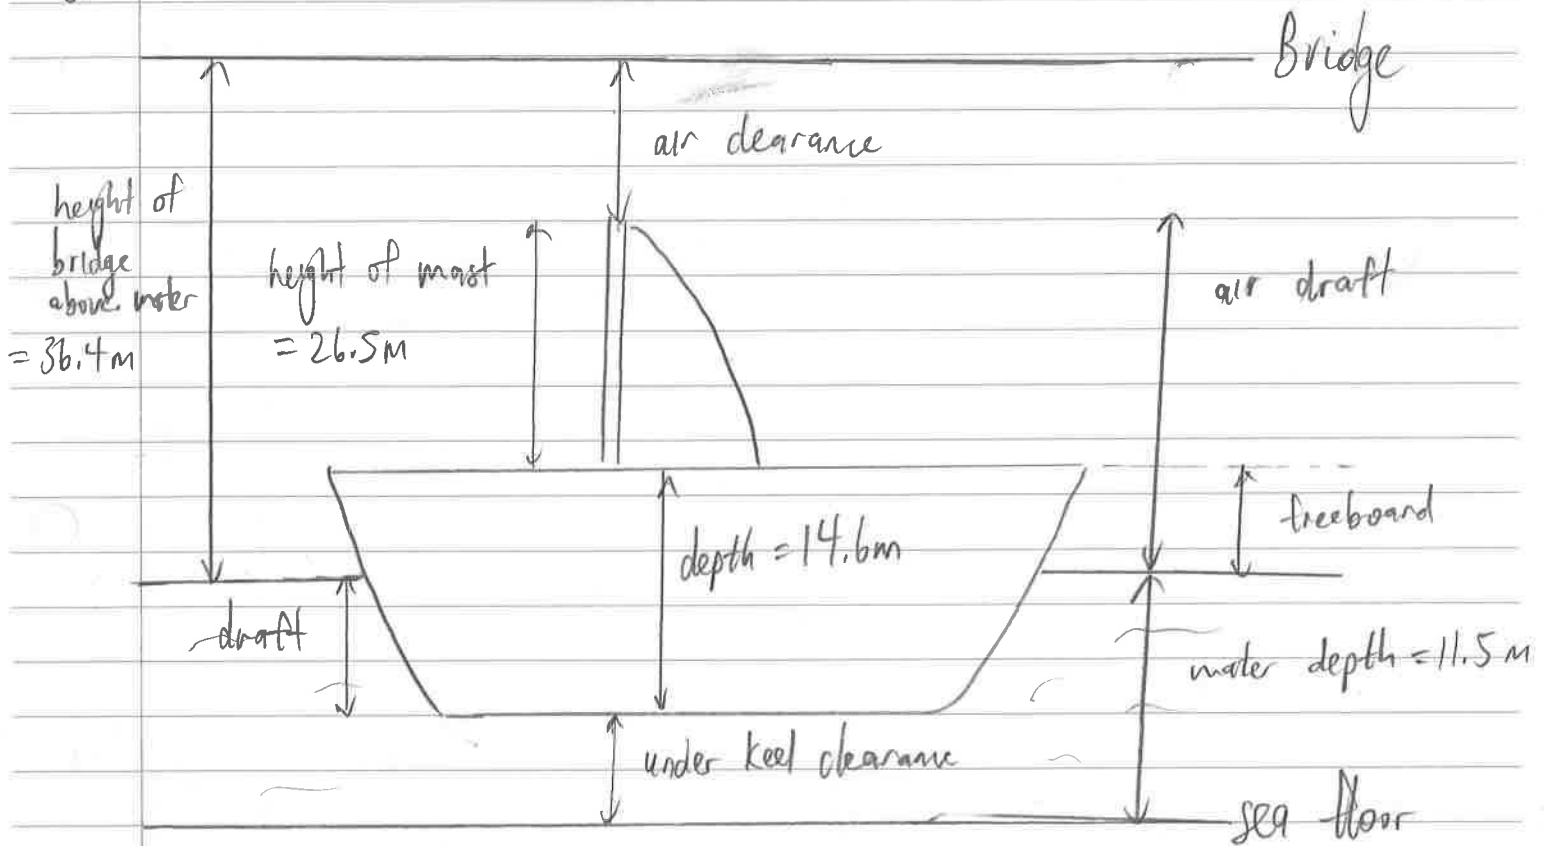 Bridge
air clearance
height of
bridge
above water
= 36.4m
height of mast
= 26.5m
air draft
freeboard
depth = 14.6m
draft
water depth = 11.5m
under keel clearance
sea floor